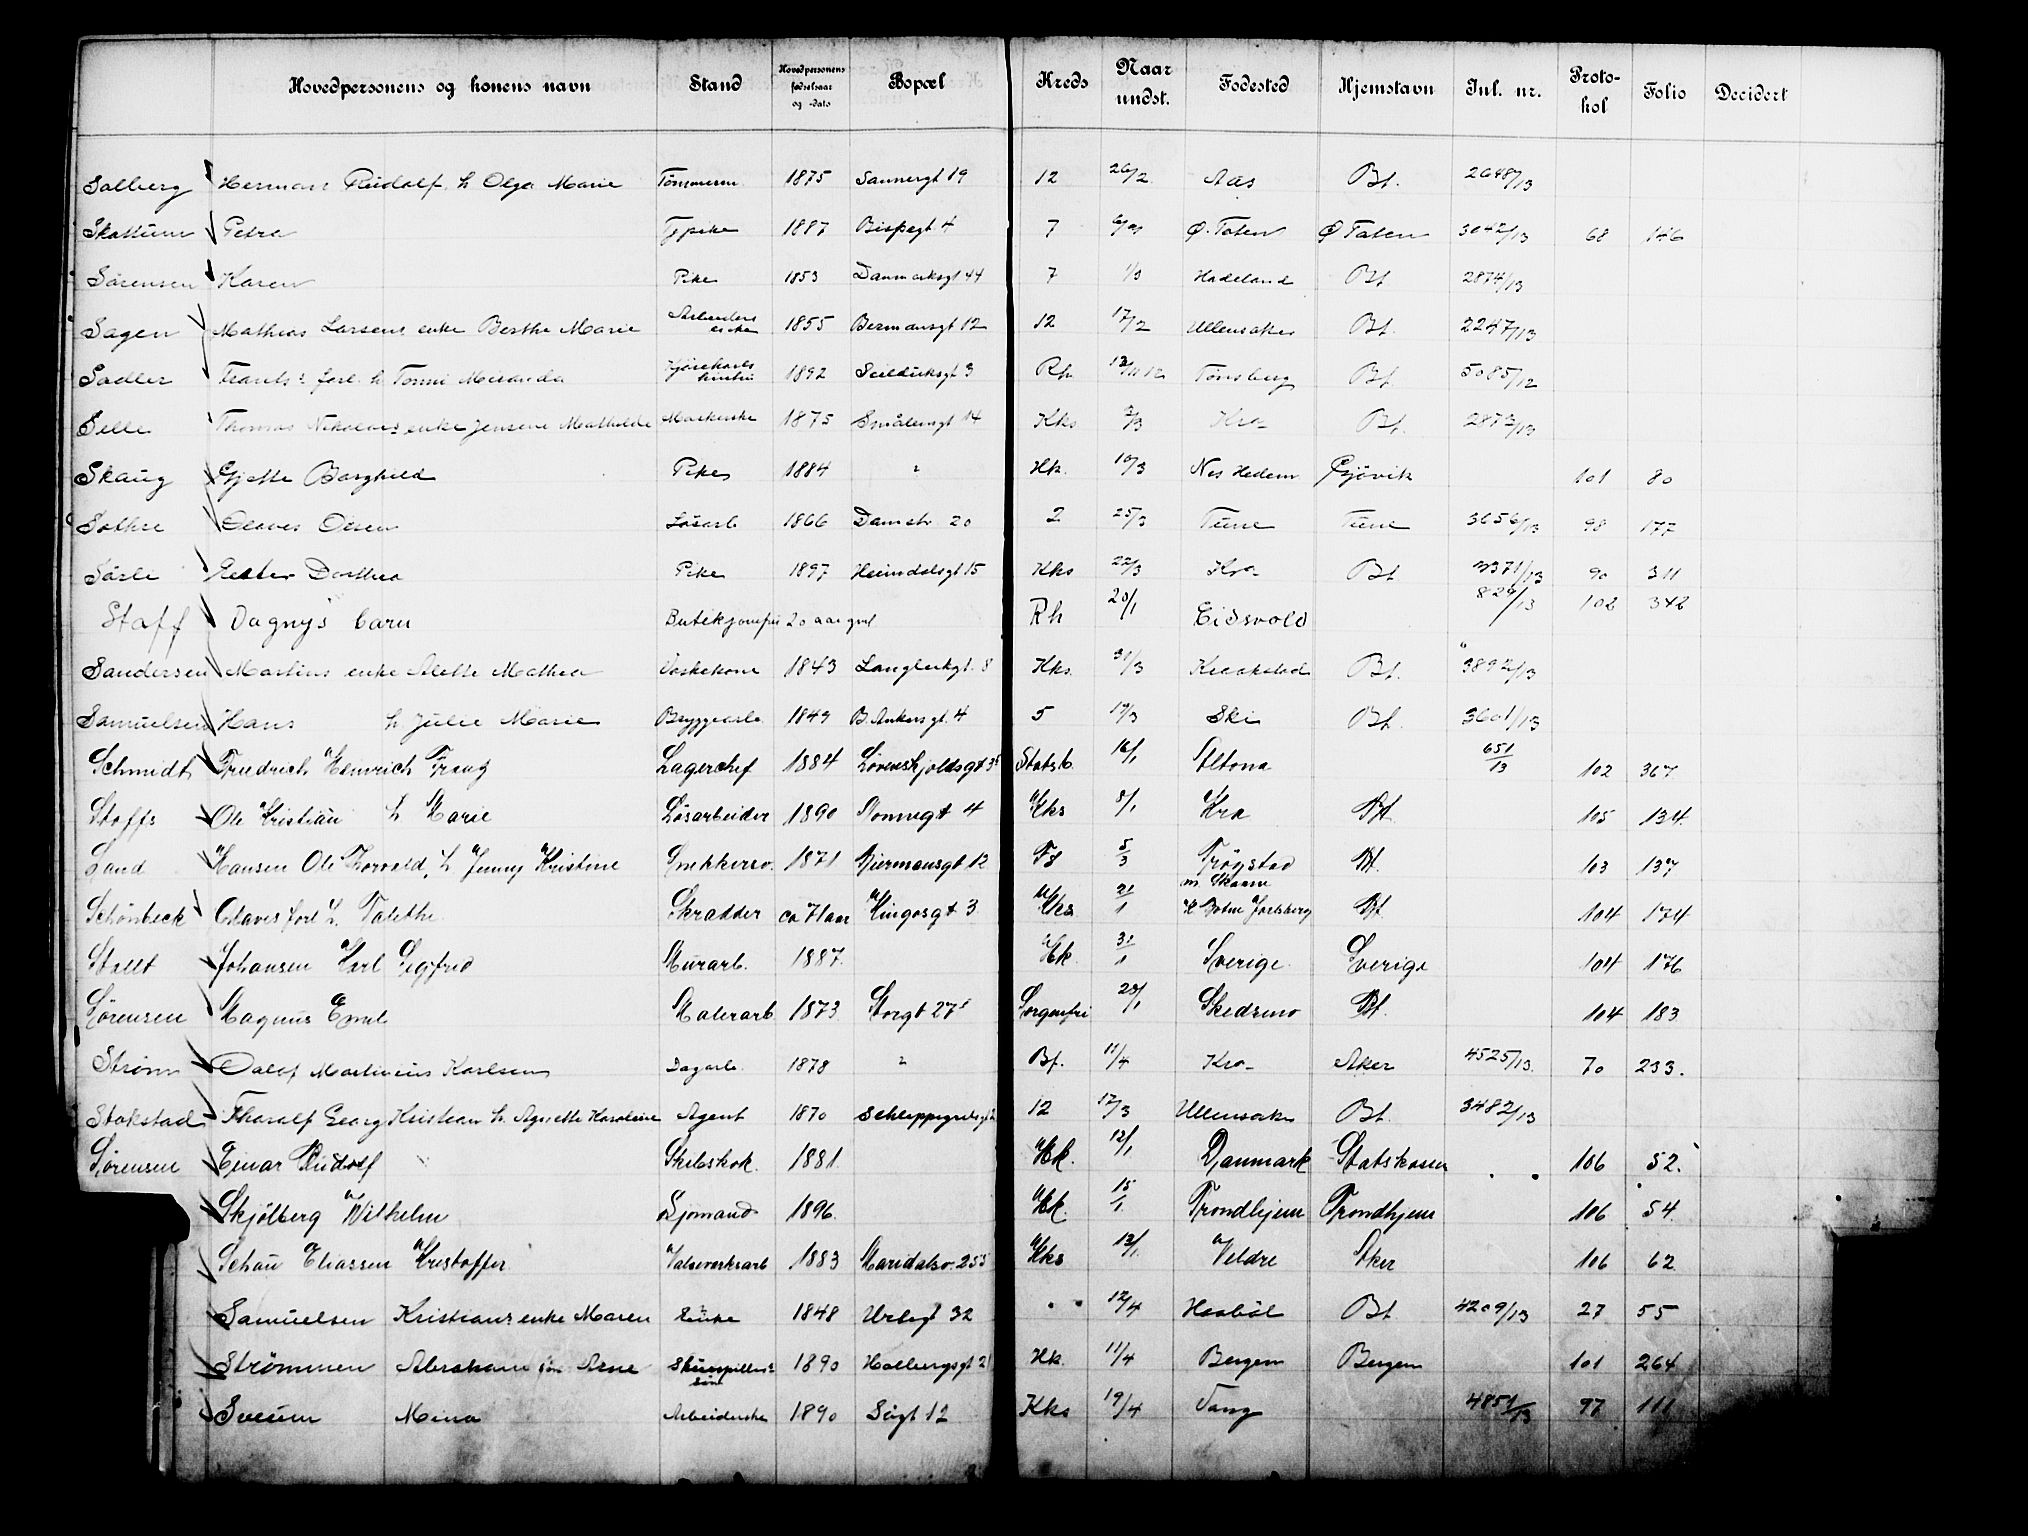 Hovedpersonens og konens navn Stand Hovedpersonens fødselsaar og -dato Bopæl Kreds Naar undst. Fødested Hjemstavn Jul. nr. Proto-kol Folio Decidert
Solberg Herman Rudolf h Olga Marie Tømmerm. 1875 Sannergt 19 12 26/2 Aas Bf. 2648/13
Skattum Petra Tjpike 1887 Bispegt 4 7 Ø. Toten Ø Toten 3042/13 68 146
Sørensen Karen Pike 1853 Danmarksgt 44 7 1/3 Hadeland Bf 2874/13
Sagen Mathias Larsens enke Berthe Marie Arbeiders enke 1855 Bermansgt 12 12 17/2 Ullensaker Bf. 2247/13
Sadler Frants's forl. h Tomi Miranda 1892 Seilduksgt 3 Rh Tønsberg Bf 5085/12
Selle Thomas Nikolais enke Jensine Mathilde 1875 Smålensgt 14 Kks 3/3 Kra Bf. 2873/13
Skaug Gjette Borghild Pike 1884 " Hk. 10/3 Nes Hedem. Gjövik 101 80
Solhie Olaves Olsen Løsarb 1866 Damstr. 20 2 25/3 Tune Tune 3656/13 98 177
Sörli Ester Dorthea Pike 1897 Heimdalsgt 15 Kks 22/3 Kra Bf 3371/13 90 311
Staff Dagnys barn Butikjomfru 20 aar gml Rh 20/1 Eidsvold 824/13 102 342
Sandersen Martins enke Alette Mathea Vaskekone 1843 Langleikgt. 8 Kks. 31/3 Kraakstad Bf. 3892/13
Samuelsen Hans h. Julie Marie Bryggearb. 1849 B. Ankersgt. 4 5 19/3 Ski Bf. 3601/13
Schmidt Friedrich Heinrich Franz Lagerchef 1884 Løvenskjoldsgt 3 Statsb. 16/1 Altona 651/13 102 367
Stoffs Ole Kristian h Marie Løsarbeider 1890 Nonnegt 4 Kks 8/1 Kra Bf. 105 134
Sand Hansen Ole Thorvald, h Jenny Kristine Snekkersv. 1871 Biermansgt 12 Fs 5/3 Trøgstad m. Skaane Bf. 103 137
Schönbeck Olaves forl h. Talette Skrædder ca 71 aar Kingosgt 3 Kks 21/1 Botne Jarlsberg Bf 104 174
Stallt Johansen Karl Sigfrid Murarb. 1887 Hk 31/1 Sverige Sverige 104 176
Sørensen Magnus Emil Malerarb 1873 Storgt 27 Sorgenfri 20/1 Skedsmo Bf. 104 183
Strøm Oalaf Martinius Karlsen Dagarb. 1878 " Bf. 11/4 Kra Aker 4525/13 70 233.
Stokstad Tharalf Georg Kristian h. Agnette Karoline Agent 1870 Schleppegrelsgt 12 17/3 Ullensaker Bf. 3482/13
Sørensen Ejnar Rudolf Skibskok. 1881 Hk. 12/1 Danmark Statskassen 106 52.
Skjølberg Wilhelm Sjømand 1896. Hk. 15/1 Trondhjem Trondhjem 106 54
Schau Eliassen Kristoffer Valseverksarb 1883 Maridalsv. 255 Kks 13/1 Veldre Aker 106 62
Samuelsen Kristians enke Maren Enke 1848 Urtegt 32 12/4 Haabøl Bf 4209/13 27 55
Strömmen Abraham søn Arne Skuespillers søn 1890 Holbergsgt 21 Hk. 11/4 Bergen Bergen 101 264
Sveum Mina Arbeiderske 1890 Søgt 12 Kks 19/4 Vang 4851/13 97 111